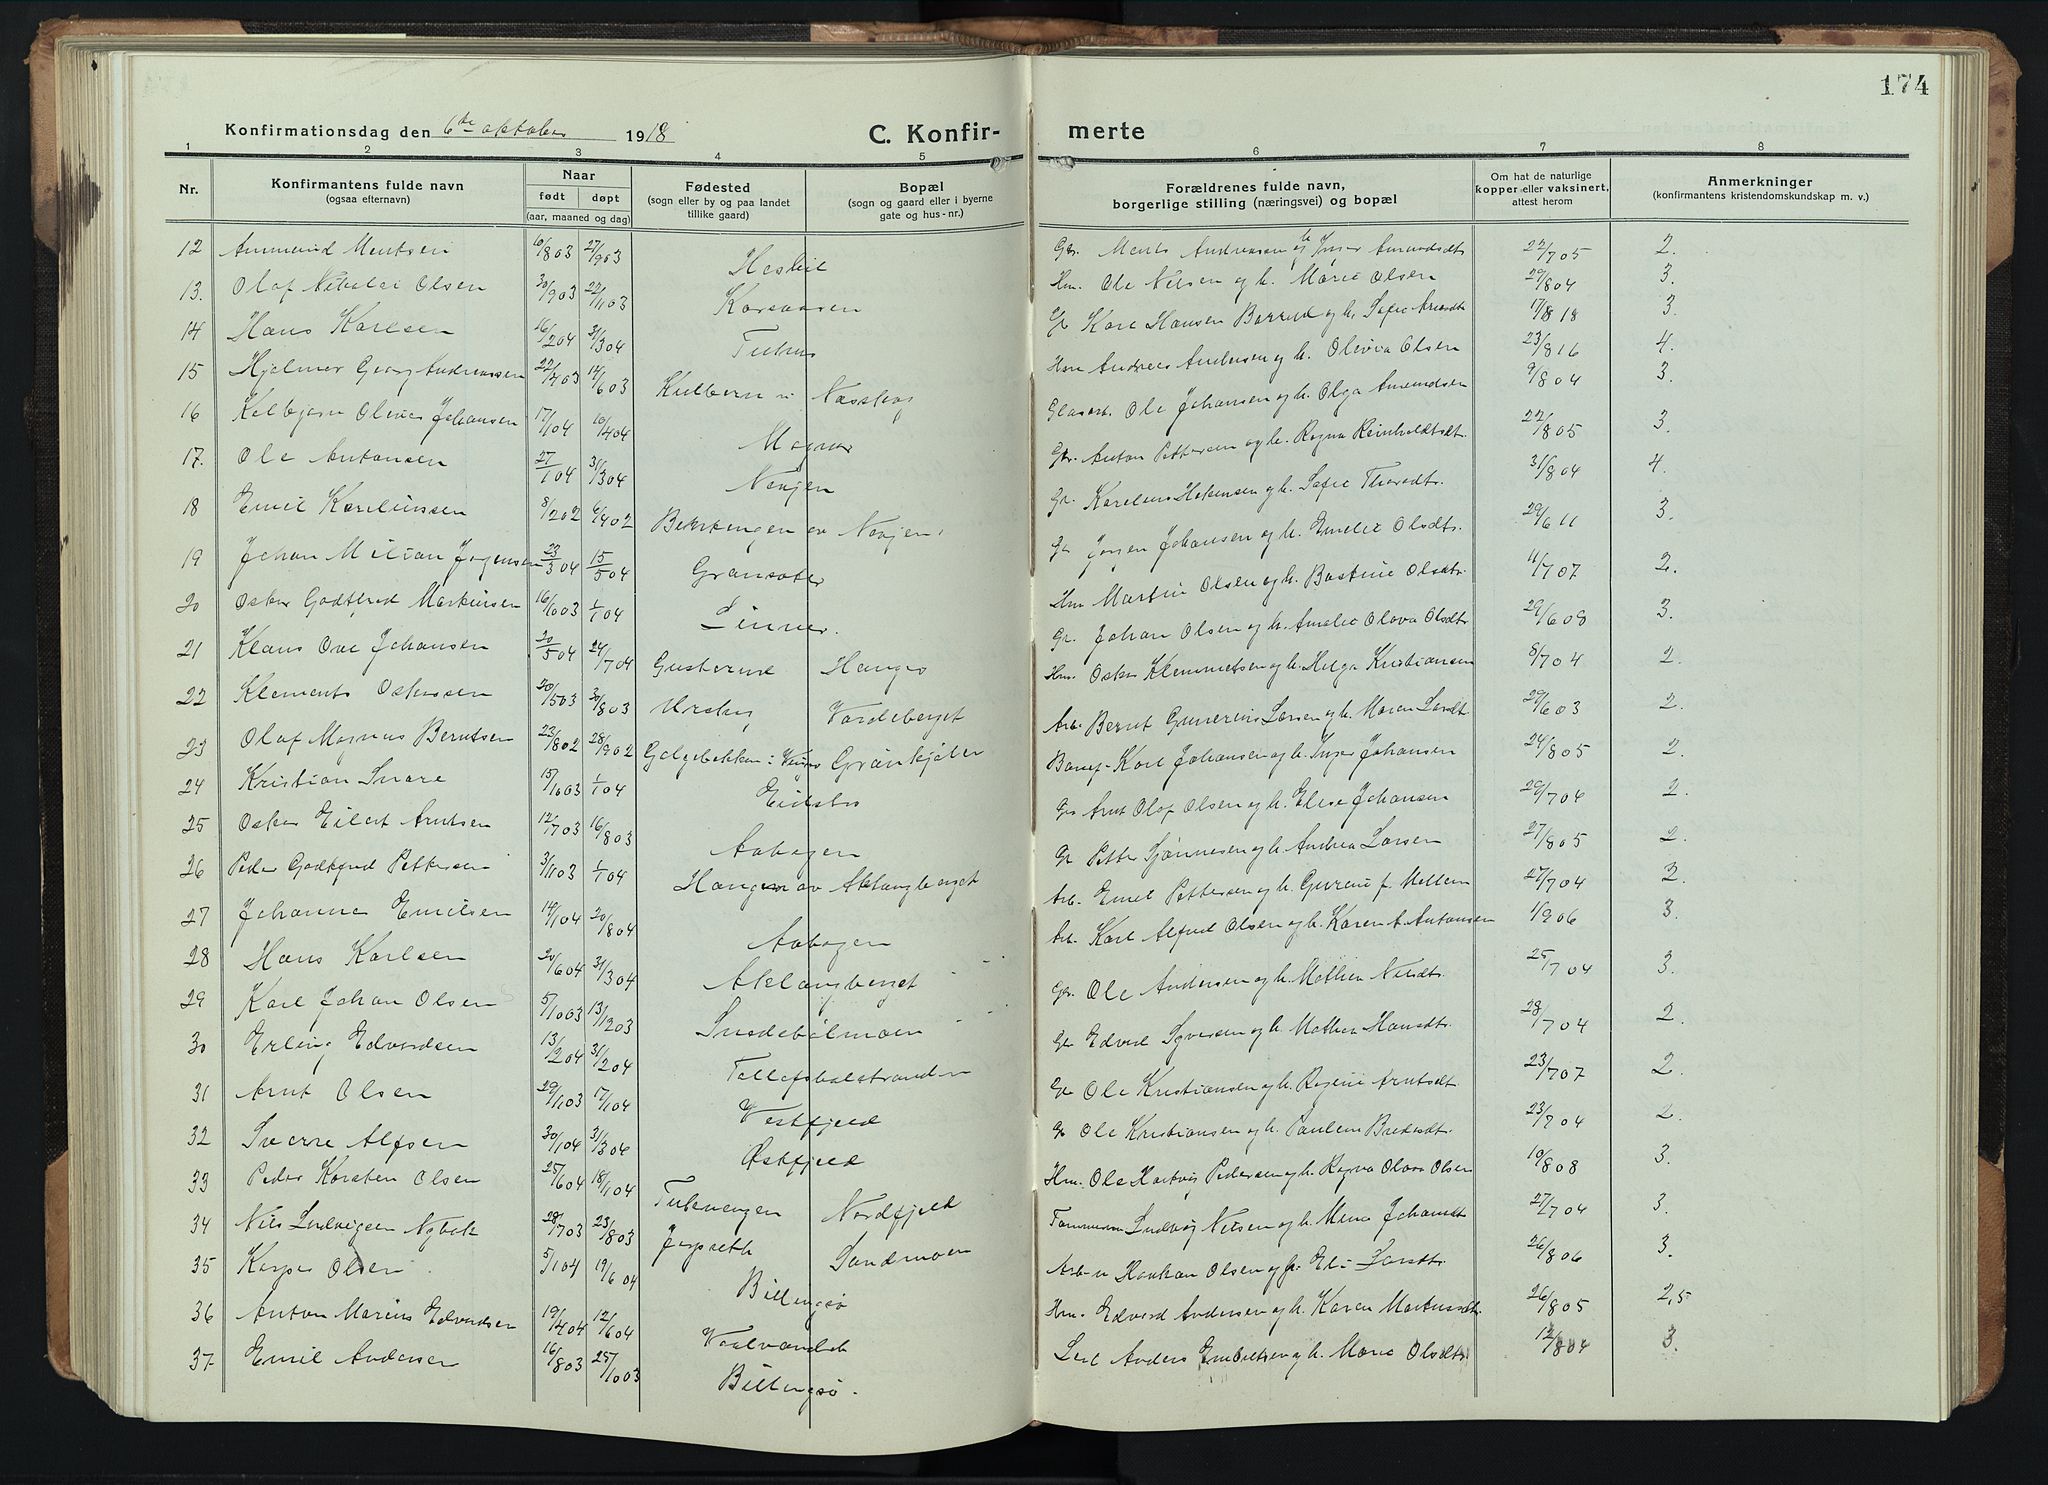 174
Konfirmationsdag den 6te oktober 1918
C. Konfir-
merte
1 2 3 4 5 6 7 8
Nr.
Konfirmantens fulde navn
(ogsaa efternavn)
Naar
født døpt
(aar, maaned og dag)
Fødested
(sogn eller by og paa landet
tillike gaard)
Bopæl
(sogn og gaard eller i byerne
gate og hus-nr.)
Forældrenes fulde navn,
borgerlige stilling (næringsvei) og bopæl
Om hat de naturlige
kopper eller vaksinert,
attest herom
Anmerkninger
(konfirmantens kristendomskundskap m. v.)
12 Ammund Mentsen 10/8 03 27/9 03 Gbr. Ments Andreassen og h. Inger Amundsdt. 22/7 05 2.
13. Olaf Nikolai Olsen 30/9 03 22/11 03 Korsaasen Hm. Ole Nilsen og h. Marie Olsen 29/8 04 3.
14 Hans Karlsen 16/2 04 31/3 04 Karl Hansen Borrud og h. 17/8 18 3.
15 Hjalmar Georg Andreassen 22/4 03 14/6 03 Hm Andreas Andersen og h. Olivia Olsen 23/8 16 4.
16 Kolbjørn Oliver Johansen 17/1 04 10/4 04 Magnor Ole Johansen og h. Olga Amundsen 9/8 04 3.
17. Ole Antonsen 27/1 04 31/3 04 Gbr. Anton Pettersen og h. Ragna Reinholdtsdt. 22/8 05 3.
18 Emil Karelinssen 8/2 02 6/4 02 Gr. Karelius Hokensen og h. Sofie 31/8 04 4.
19 Johan Milian Jørgensen 23/3 04 15/5 04 Gransæter Gr. Jørgen Johansen og h. Emelie Olsdtr. 29/6 11 3.
20 Oskar Godtfred Martinsen 16/10 03 1/1 04 Linner. Hm Martin Olsen og h. Bastine Olsdtr. 11/7 07 2.
21 Klaus Ove Johansen 20/5 04 24/7 04 Gr. Johan Olsen og h. Amalie Olava Olsdtr 29/6 08 3.
22 Klements Oskarsen 20/5 03 30/8 03 Urskog Vardeberget Hm. Oskar Klemmetsen og h. Helga Kristiansen 8/7 04 2.
23 Olaf Magnus Berntsen 23/8 02 28/9 02 Galgebakken i Vinger Grankjølen Arb. Bernt Gunerius Larsen og h. Maren Larsdt. 29/6 03 2.
24 Kristian Snare 15/10 03 1/1 04 Eidsbro Karl Johansen og h. Inger Johansen 24/8 05 2.
25 Oskar Eilert Arntsen 12/7 03 16/8 03 Aabogen Gr Arnt Olaf Olsen og h. Elise Johansen 29/7 04 2.
26 Peder Godtfred Pettersen 3/11 03 1/1 04 Hangen av Aklangberget Gr Petter Sjønnesen og h. Andrea Larsen 27/8 05 2.
27 Johannes Emilsen 14/1 04 20/8 04 Aabogen Arb. Emil Pettersen og h. Gurine f. Mellem 27/7 04 2.
28 Hans Karlsen 20/6 04 31/3 04 Aklangberget Arb. Karl Alfred Olsen og h. Karen A. Antonsen 1/9 06 3.
29 Karl Johan Olsen 5/10 03 13/12 03 Snedebølmoen Gr. Ole Andersen og h. Mathea Nilsdt. 25/7 04 3.
30 Erling Edvardsen 13/2 04 31/2 04 Tollefsbølstranden Gr Edvard Syversen og h. Mathea Hansdtr. 28/7 04 2.
31 Arnt Olsen 29/11 03 17/1 04 Vestfjeld Gr Ole Kristiansen og h. Regine Arntsdt. 23/7 07 2.
32 Sverre Alfsen 30/1 04 31/3 04 Østfjeld Gr Ole Kristiansen og h. Pauline 23/7 04 2.
33 Peder Karsten Olsen 25/6 04 18/1 04 Nordfjeld Hm. Ole Hartvig Pedersen og h. Ragna Olava Olsen 10/8 08 3.
34 Nils Ludvigsen Nybak 28/7 03 23/8 03 Sandmoen Ludvig Nilsen og h. Mina Johansdt. 27/7 04 3.
35 Kasper Olsen 5/1 04 19/6 04 Billingsø Haakon Olsen og h. Eli Larsdtr. 26/8 06 3.
36 Anton Marius Edvardsen 19/4 04 12/6 04 Hm. Edvard Andersen og h. Karen 26/8 05 2,5
37. Emil Andersen 16/8 03 25/10 03 Billingsø. Anders Embretsen og h. Marie Olsdtr. 12/8 04 3.